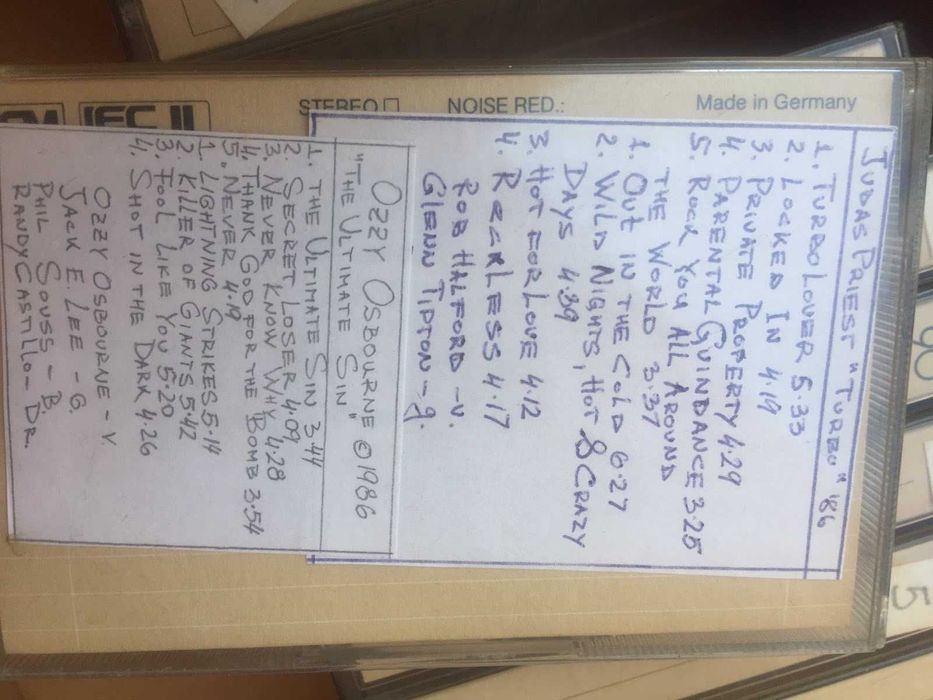 STEREO
NOISE RED.:
Made in Germany
IEC II
JUDAS PRIEST "TURBO" '86
1. TURBO LOVER 5.33
2. LOCKED IN 4.19
3. PRIVATE PROPERTY 4.29
4. PARENTAL GUINDANCE 3.25
5. ROCK YOU ALL AROUND
THE WORLD 3.37
1. OUT IN THE COLD 6.27
2. WILD NIGHTS, HOT & CRAZY
DAYS 4.39
3. HOT FOR LOVE 4.12
4. RECKLESS 4.17
ROB HALFORD - v.
GLENN TIPTON - g.
OZZY OSBOURNE @ 1986
"THE ULTIMATE SIN"
1. THE ULTIMATE SIN 3.44
2. SECRET LOSER 4.09
3. NEVER KNOW WHY 4.28
4. THANK GOD FOR THE BOMB 3.54
5. NEVER 4.19
1. LIGHTNING STRIKES 5.14
2. KILLER OF GIANTS 5.42
3. FOOL LIKE YOU 5.20
4. SHOT IN THE DARK 4.26
OZZY OSBOURNE - V.
JACK E. LEE - G.
PHIL SOUSS - B.
RANDY CASTILLO - DR.
90
5